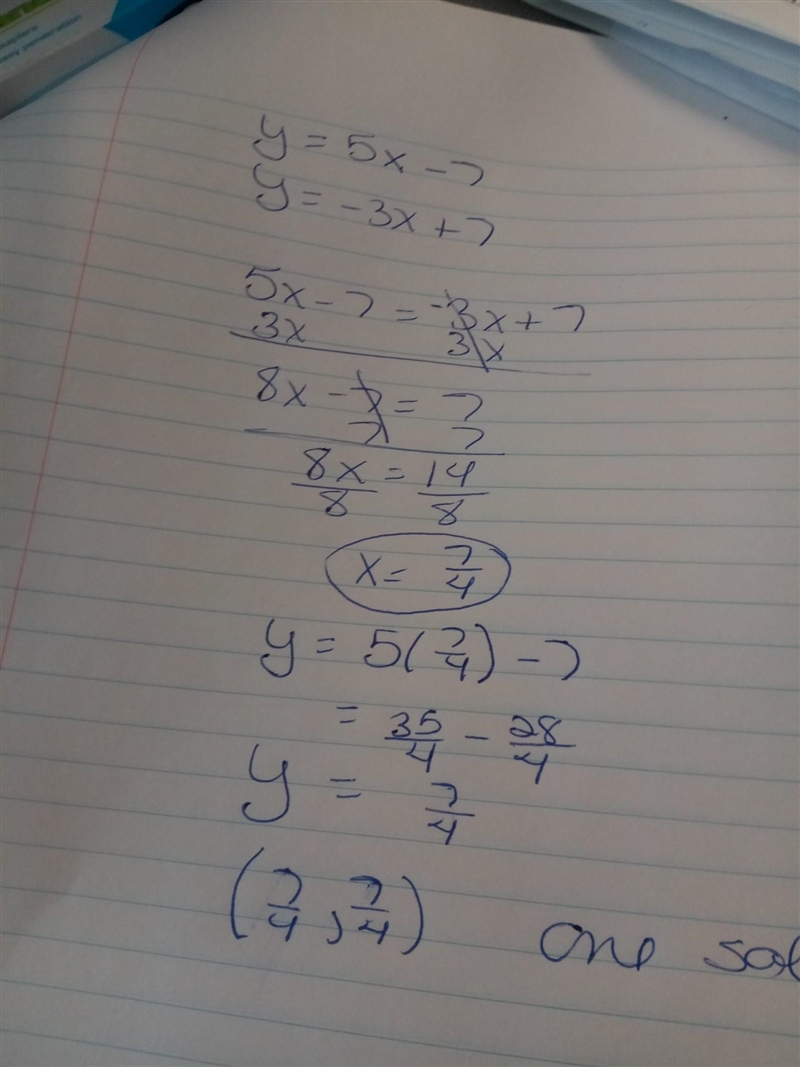 y = 5x - 7
y = -3x + 7
5x - 7 = -3x + 7
3x 3x
8x - 7 = 7
7 7
8x = 14
8 8
x = 7/4
y = 5(7/4) - 7
= 35/4 - 28/4
y = 7/4
(7/4, 7/4) one sol